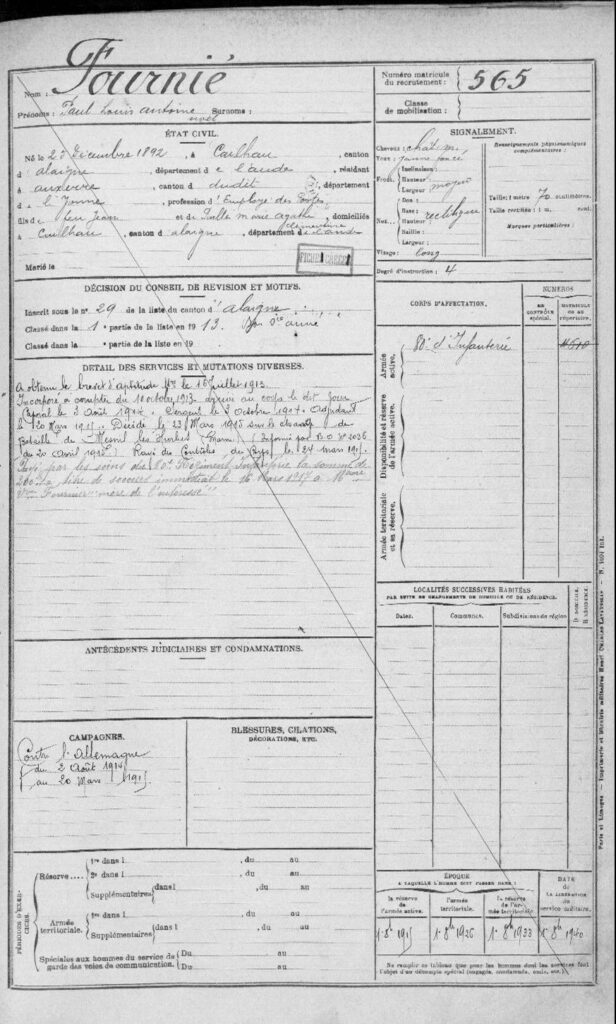 Nom : Fournié
Prénoms : Paul Louis Antoine Noël Surnoms :
ÉTAT CIVIL.
Né le 25 Décembre 1892, à Cailhau, canton
d'alaigne, département de l'aude, résidant
à auxerre, canton d dudit, département
d e l'Yonne, profession d'Employé des Postes
fils de feu Jean et de Salle marie agathe Clémentine, domiciliés
à Cailhau, canton d'alaigne, département de l'aude
Marié le
DÉCISION DU CONSEIL DE REVISION ET MOTIFS.
Inscrit sous le n° 29 de la liste du canton d'alaigne
Classé dans la 1e partie de la liste en 1913. Bon Sce armé
Classé dans la partie de la liste en 19
DÉTAIL DES SERVICES ET MUTATIONS DIVERSES.
A obtenu le brevet d'aptitude Mre le 16 Juillet 1913.
Incorporé à compter du 10 octobre 1913 arrivé au corps le dit jour
Caporal le 2 Août 1914. Sergent le 3 Octobre 1914. Adjudant
le 20 Mars 1915. Décédé le 23 Mars 1915 sur le champ de
Bataille de Mesnil les Hurlus Marne (Informé par B.O. N° 2036
du 20 avril 1915). Rayé des Contrôles du Corps le 24 mars 1915.
Payé par les soins du 80e Régiment Infanterie la somme de
200 à titre de secours immédiat le 16 Mars 1917 à Mme
Vve Fournier "mère de l'intéressé"
ANTÉCÉDENTS JUDICIAIRES ET CONDAMNATIONS.
CAMPAGNES.
Contre l'Allemagne
du 2 Août 1914
au 20 Mars 1915
BLESSURES, CITATIONS,
DÉCORATIONS, ETC.
PÉRIODES D'EXERCICES.
Réserve
1re dans l , du au
2e dans l , du au
Supplémentaires dans l , du au
Armée territoriale.
1re dans l , du au
Supplémentaires dans l , du au
Spéciales aux hommes du service de garde des voies de communication. Du au
Du au
Numéro matricule du recrutement : 565
Classe de mobilisation :
SIGNALEMENT.
Cheveux : chât. m.
Yeux : jaune foncé
Front. Inclinaison :
Hauteur :
Largeur : moyen
Nez. Dos :
Base : rectiligne
Hauteur :
Saillie :
Largeur :
Visage : long
Renseignements physionomiques complémentaires :
Taille : 1 mètre 70 centimètres.
Taille rectifiée : 1 m. cent.
Marques particulières :
Degré d'instruction : 4
CORPS D'AFFECTATION.
NUMÉROS
AU CONTRÔLE spécial.
MATRICULE OU AU répertoire.
Armée active.
80e d'Infanterie
Disponibilité et réserve de l'armée active.
Armée territoriale et sa réserve.
LOCALITÉS SUCCESSIVES HABITÉES
PAR SUITE DE CHANGEMENTS DE DOMICILE OU DE RÉSIDENCE.
Dates.
Communes.
Subdivisions de région
D DOMICILE.
R RÉSIDENCE.
ÉPOQUE
A LAQUELLE L'HOMME DOIT PASSER DANS :
la réserve de l'armée active.
l'armée territoriale.
la réserve de l'armée territoriale.
DATE DE LA LIBÉRATION du service militaire.
1er 8bre 1915
1er 8bre 1926
1er 8bre 1933
1er 8bre 1940
Ne remplir ce tableau que pour les hommes dont les services font l'objet d'un décompte spécial (engagés, condamnés, omis, etc.).